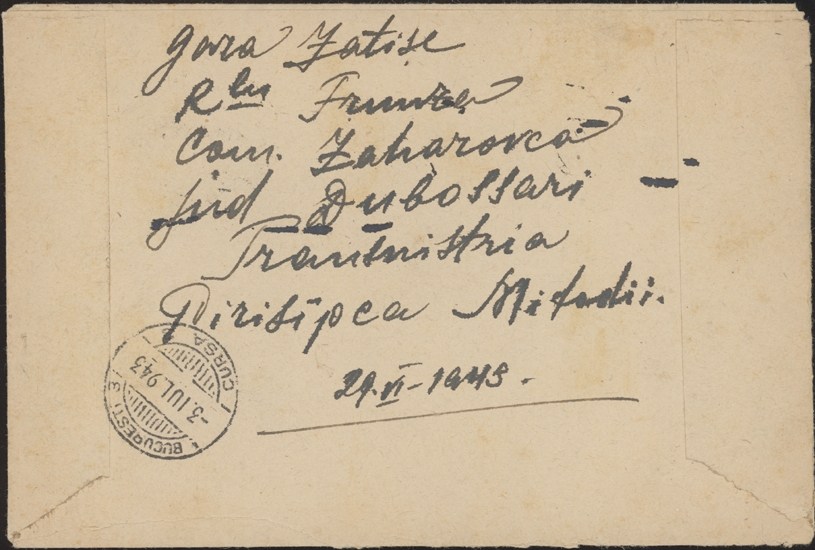 gara Zatise
Rlu Frunza
Com. Zaharovca
jud Dubossari
Transnistria
Pirisipca Mitodii.
29.VI-1943.
BUCURESTI 3
-3.IUL.943
CURSA 2